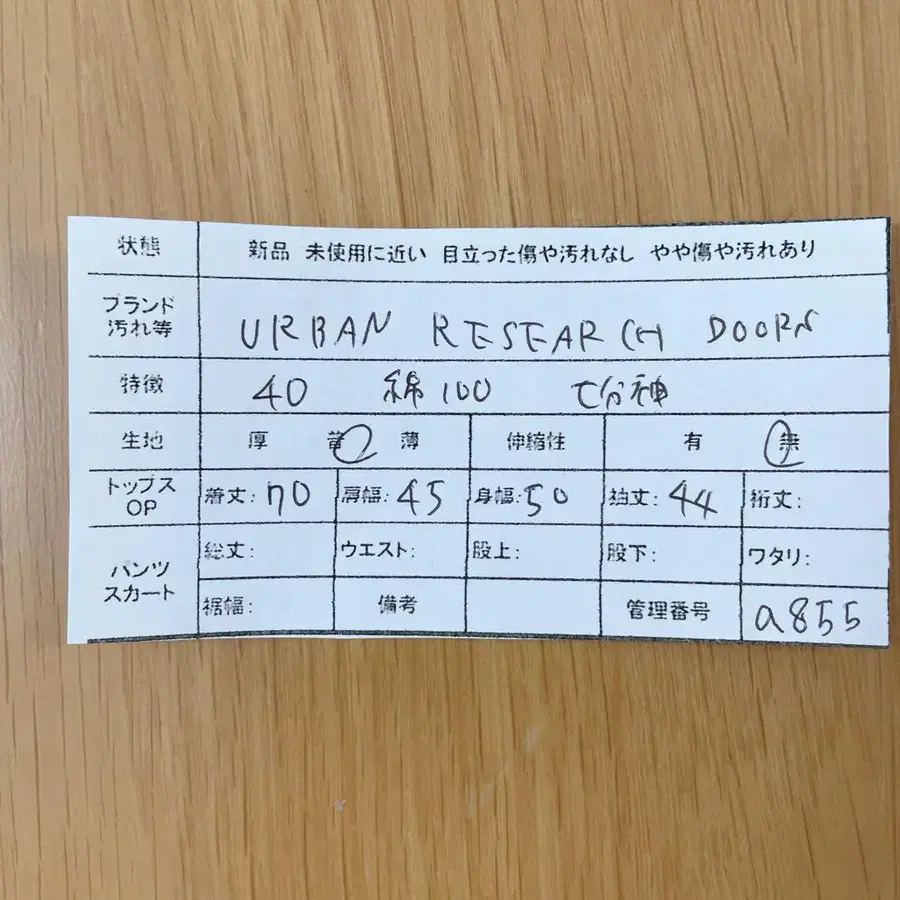 状態 新品 未使用に近い 目立った傷や汚れなし やや傷や汚れあり
ブランド
汚れ等 URBAN RESEARCH DOORS
特徴 40 綿100 七分袖
生地 厚 普 薄 伸縮性 有 無
トップス
OP 着丈: 70 肩幅: 45 身幅: 50 袖丈: 44 裄丈:
パンツ
スカート 総丈: ウエスト: 股上: 股下: ワタリ:
裾幅: 備考 管理番号 a855